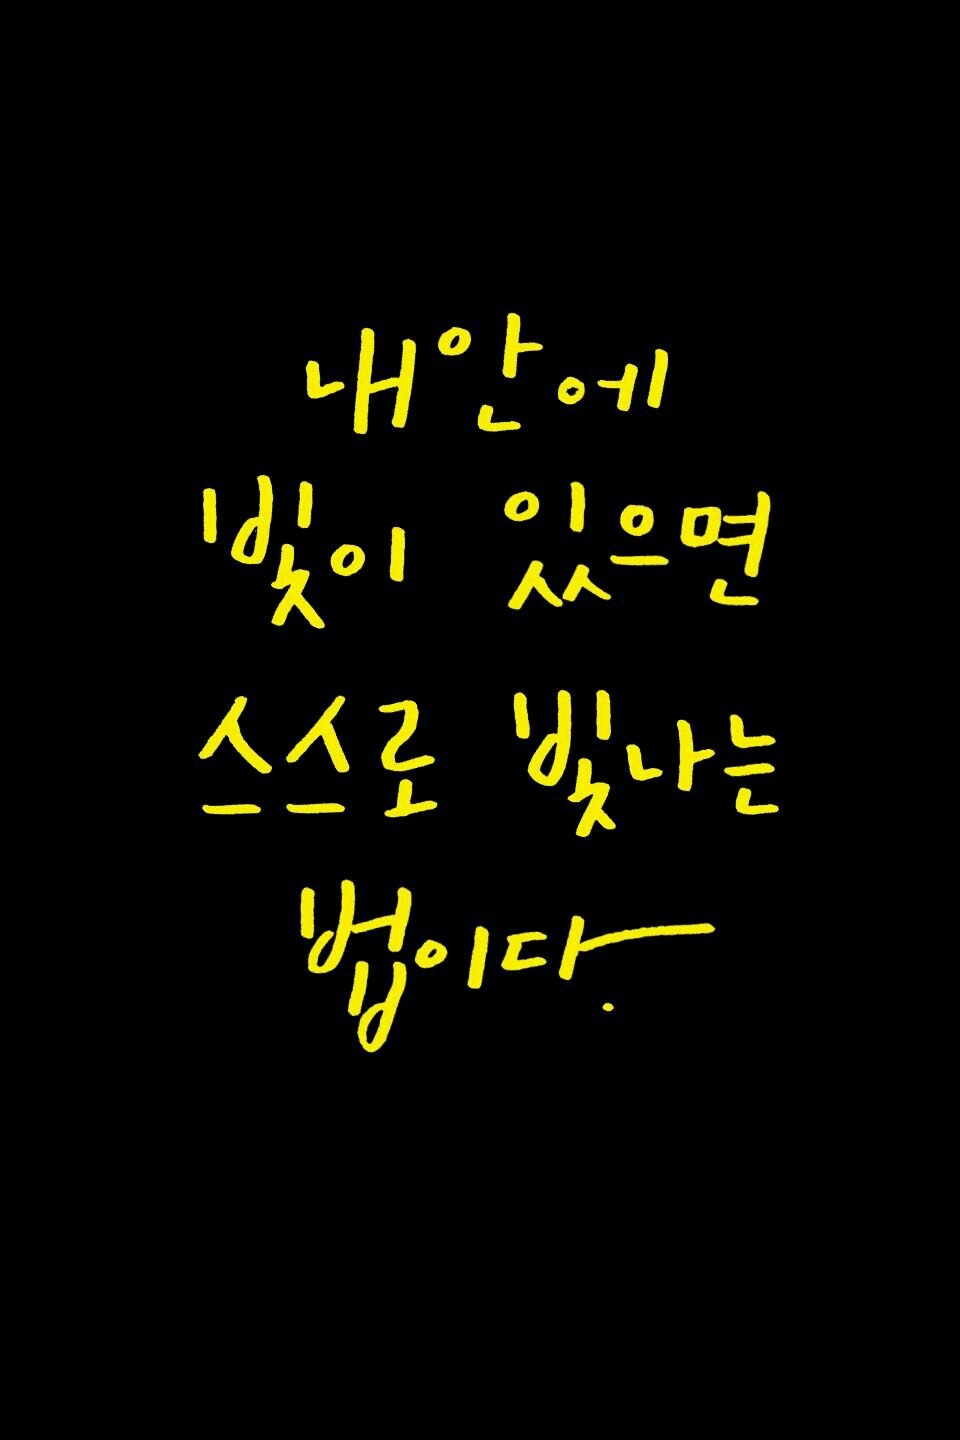 내안에
빛이 있으면
스스로 빛나는
법이다.